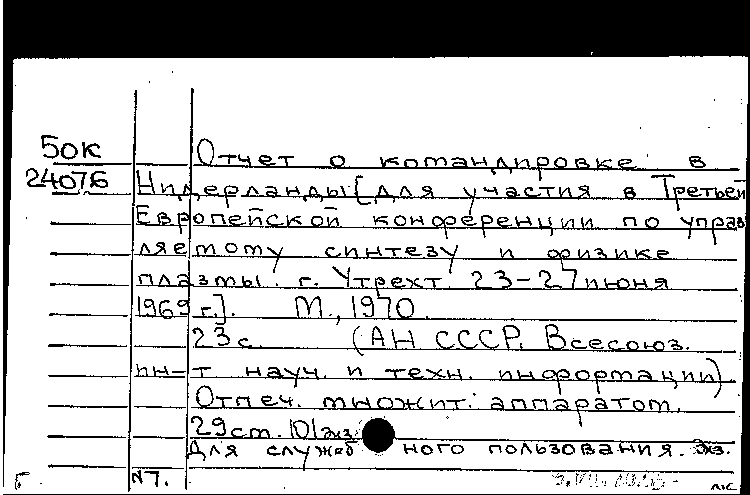 50К
24076
Отчет о командировке в
Нидерланды [для участия в Третьей
Европейской конференции по управ
ляемому синтезу и физике
плазмы. г. Утрехт. 23-27 июня
1969 г.]. М., 1970.
23 с. (АН СССР. Всесоюз.
ин-т науч. и техн. информации)
Отпеч. множит. аппаратом.
29 см. 101 экз.
Для служеб ного пользования. Экз.
Г. N7.